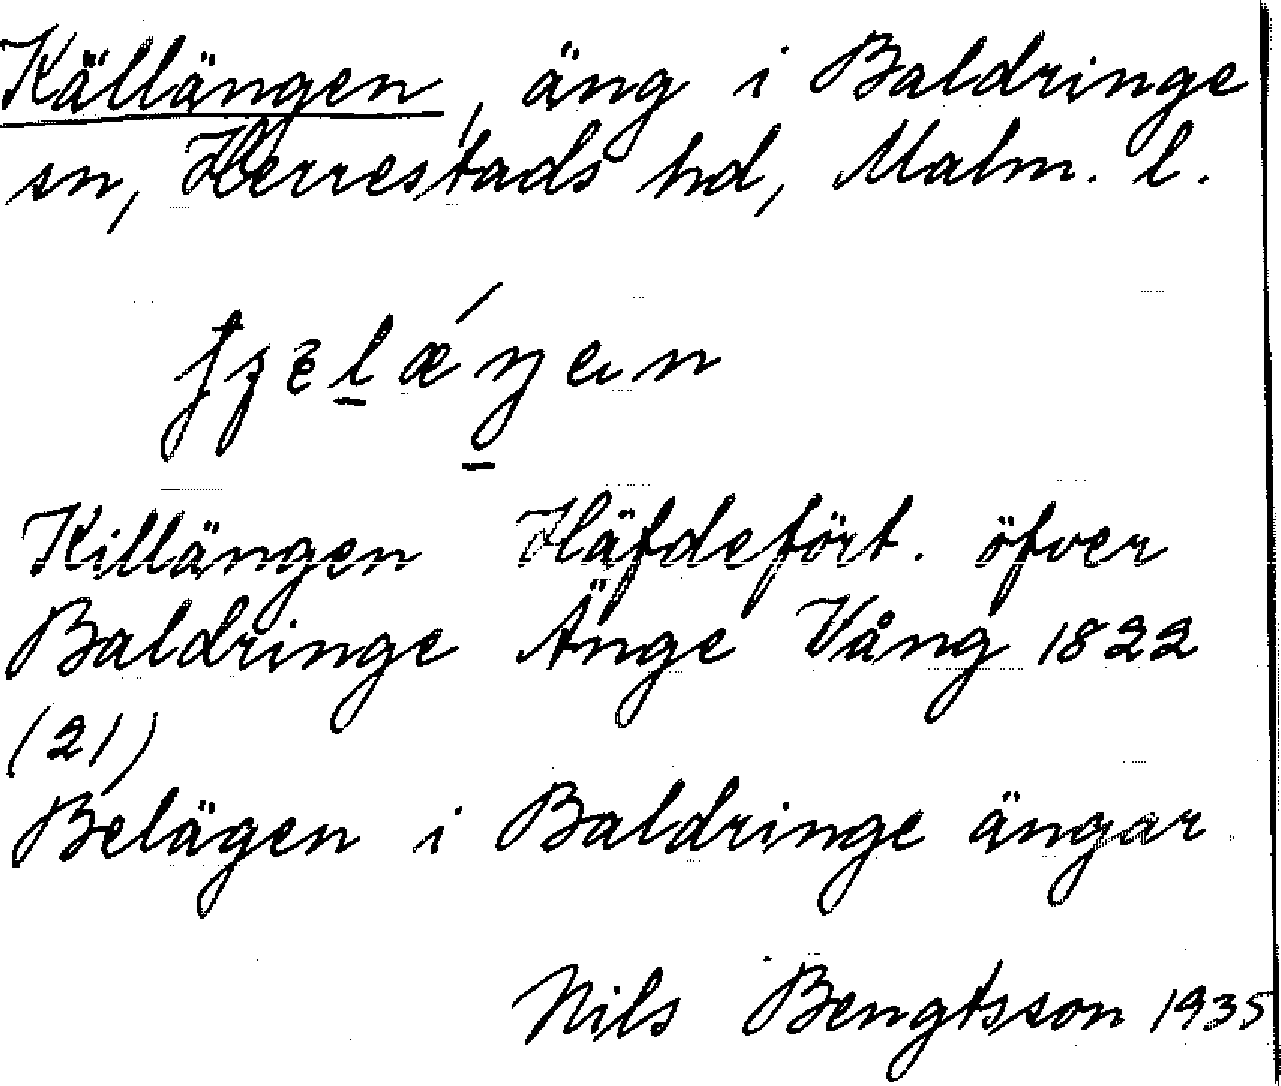 Källängen, äng i Baldringe
sn, Herrestads hd, Malm. l.
Killängen Häfdefört. öfver
Baldringe Änge Vång 1822
(21)
Belägen i Baldringe ängar
Nils Bengtsson 1935